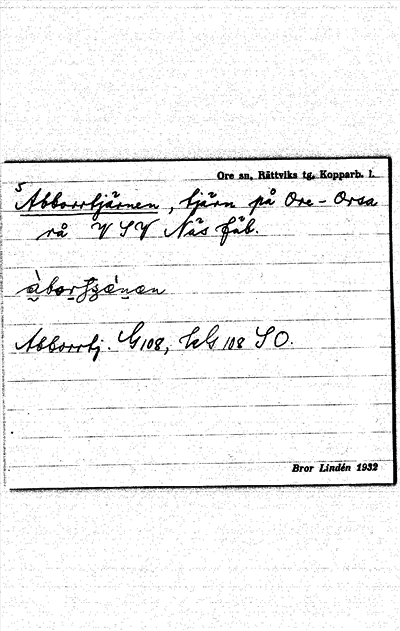 Ore sn, Rättviks tg, Kopparb. l.
5
Abborrtjärnen, tjärn på Ore-Orsa
rå V SV Näs fäb.
Abborrtj. G 108, SO.
Bror Lindén 1932